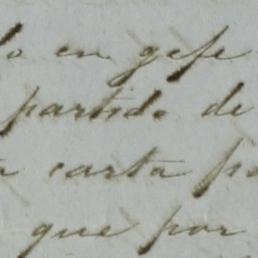 lo en gefe
partido de
carta
que por